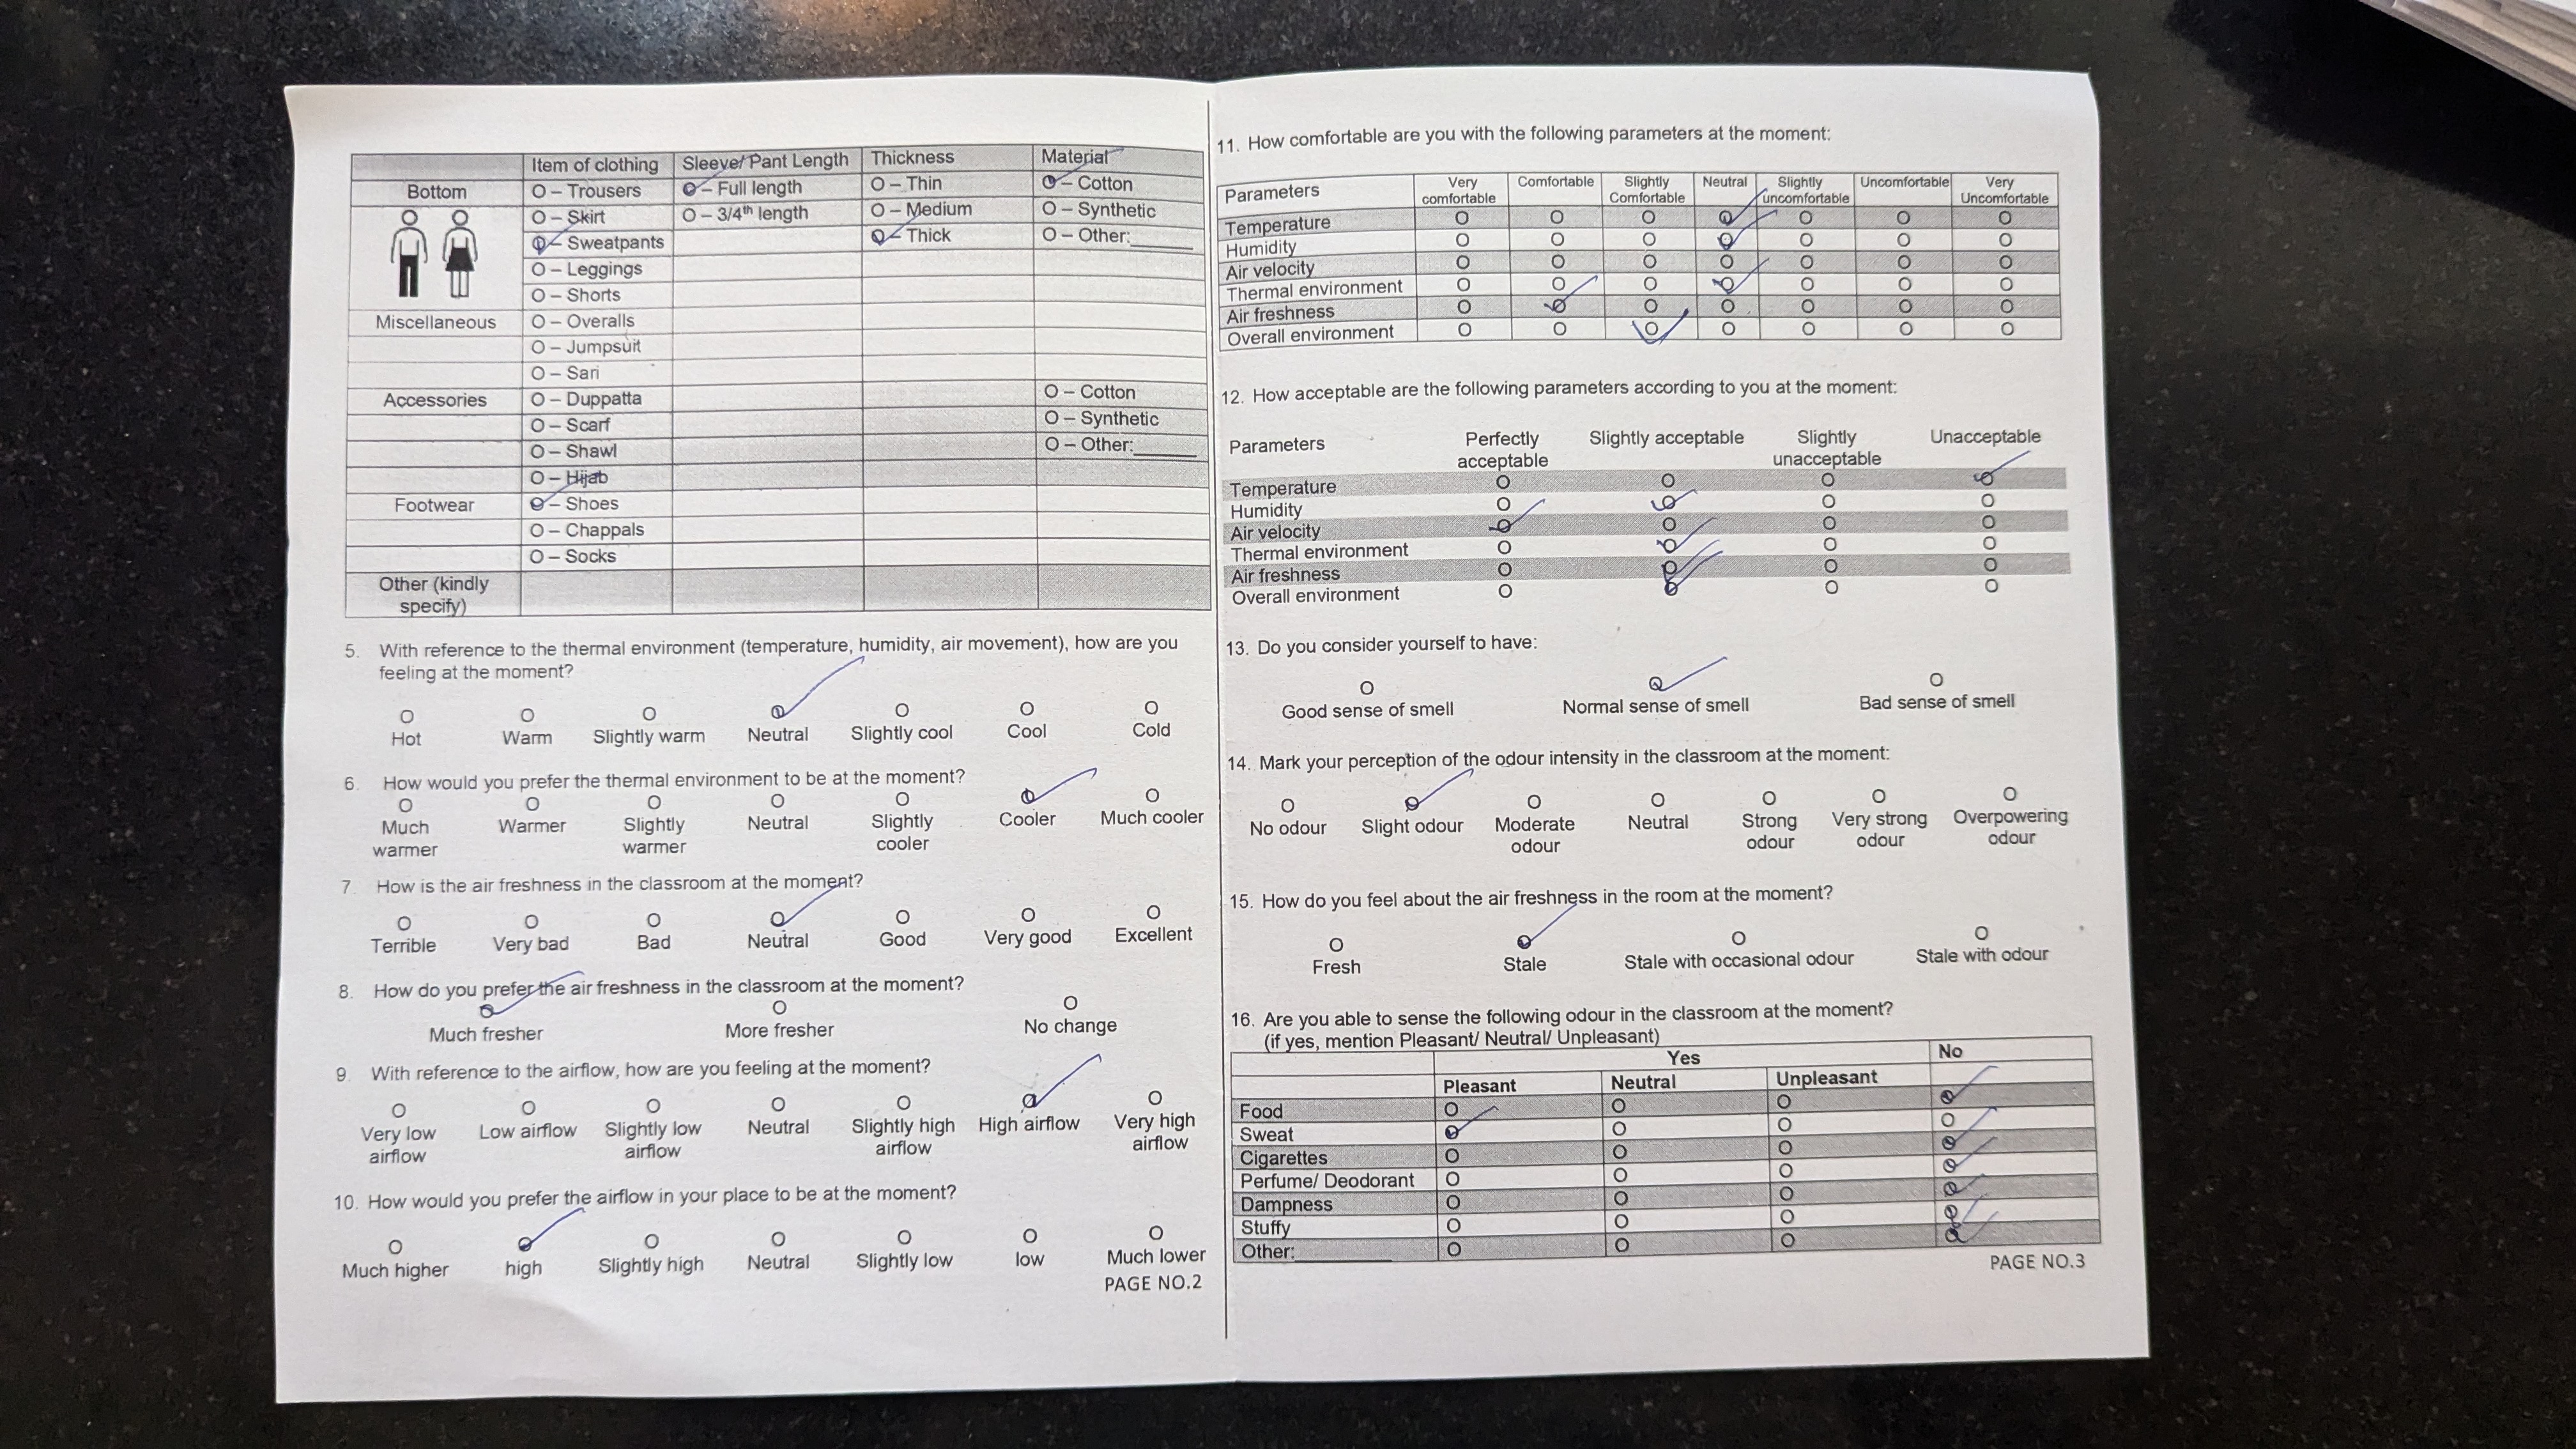 Item of clothing Sleeve/ Pant Length Thickness Material
Bottom O – Trousers O – Full length O – Thin O – Cotton
O – Skirt O – 3/4th length O – Medium O – Synthetic
O – Sweatpants O – Thick O – Other:______
O – Leggings
O – Shorts
Miscellaneous O – Overalls
O – Jumpsuit
O – Sari
Accessories O – Duppatta O – Cotton
O – Scarf O – Synthetic
O – Shawl O – Other:______
O – Hijab
Footwear O – Shoes
O – Chappals
O – Socks
Other (kindly
specify)
5. With reference to the thermal environment (temperature, humidity, air movement), how are you
feeling at the moment?
Hot Warm Slightly warm Neutral Slightly cool Cool Cold
6. How would you prefer the thermal environment to be at the moment?
Much Warmer Slightly Neutral Slightly Cooler Much cooler
warmer warmer cooler
7. How is the air freshness in the classroom at the moment?
Terrible Very bad Bad Neutral Good Very good Excellent
8. How do you prefer the air freshness in the classroom at the moment?
Much fresher More fresher No change
9. With reference to the airflow, how are you feeling at the moment?
Very low Low airflow Slightly low Neutral Slightly high High airflow Very high
airflow airflow airflow airflow
10. How would you prefer the airflow in your place to be at the moment?
Much higher high Slightly high Neutral Slightly low low Much lower
PAGE NO.2
11. How comfortable are you with the following parameters at the moment:
Parameters Very Comfortable Slightly Neutral Slightly Uncomfortable Very
comfortable Comfortable uncomfortable Uncomfortable
Temperature
Humidity
Air velocity
Thermal environment
Air freshness
Overall environment
12. How acceptable are the following parameters according to you at the moment:
Parameters Perfectly Slightly acceptable Slightly Unacceptable
acceptable unacceptable
Temperature
Humidity
Air velocity
Thermal environment
Air freshness
Overall environment
13. Do you consider yourself to have:
Good sense of smell Normal sense of smell Bad sense of smell
14. Mark your perception of the odour intensity in the classroom at the moment:
No odour Slight odour Moderate Neutral Strong Very strong Overpowering
odour odour odour odour
15. How do you feel about the air freshness in the room at the moment?
Fresh Stale Stale with occasional odour Stale with odour
16. Are you able to sense the following odour in the classroom at the moment?
(if yes, mention Pleasant/ Neutral/ Unpleasant)
Yes No
Pleasant Neutral Unpleasant
Food
Sweat
Cigarettes
Perfume/ Deodorant
Dampness
Stuffy
Other:__________
PAGE NO.3